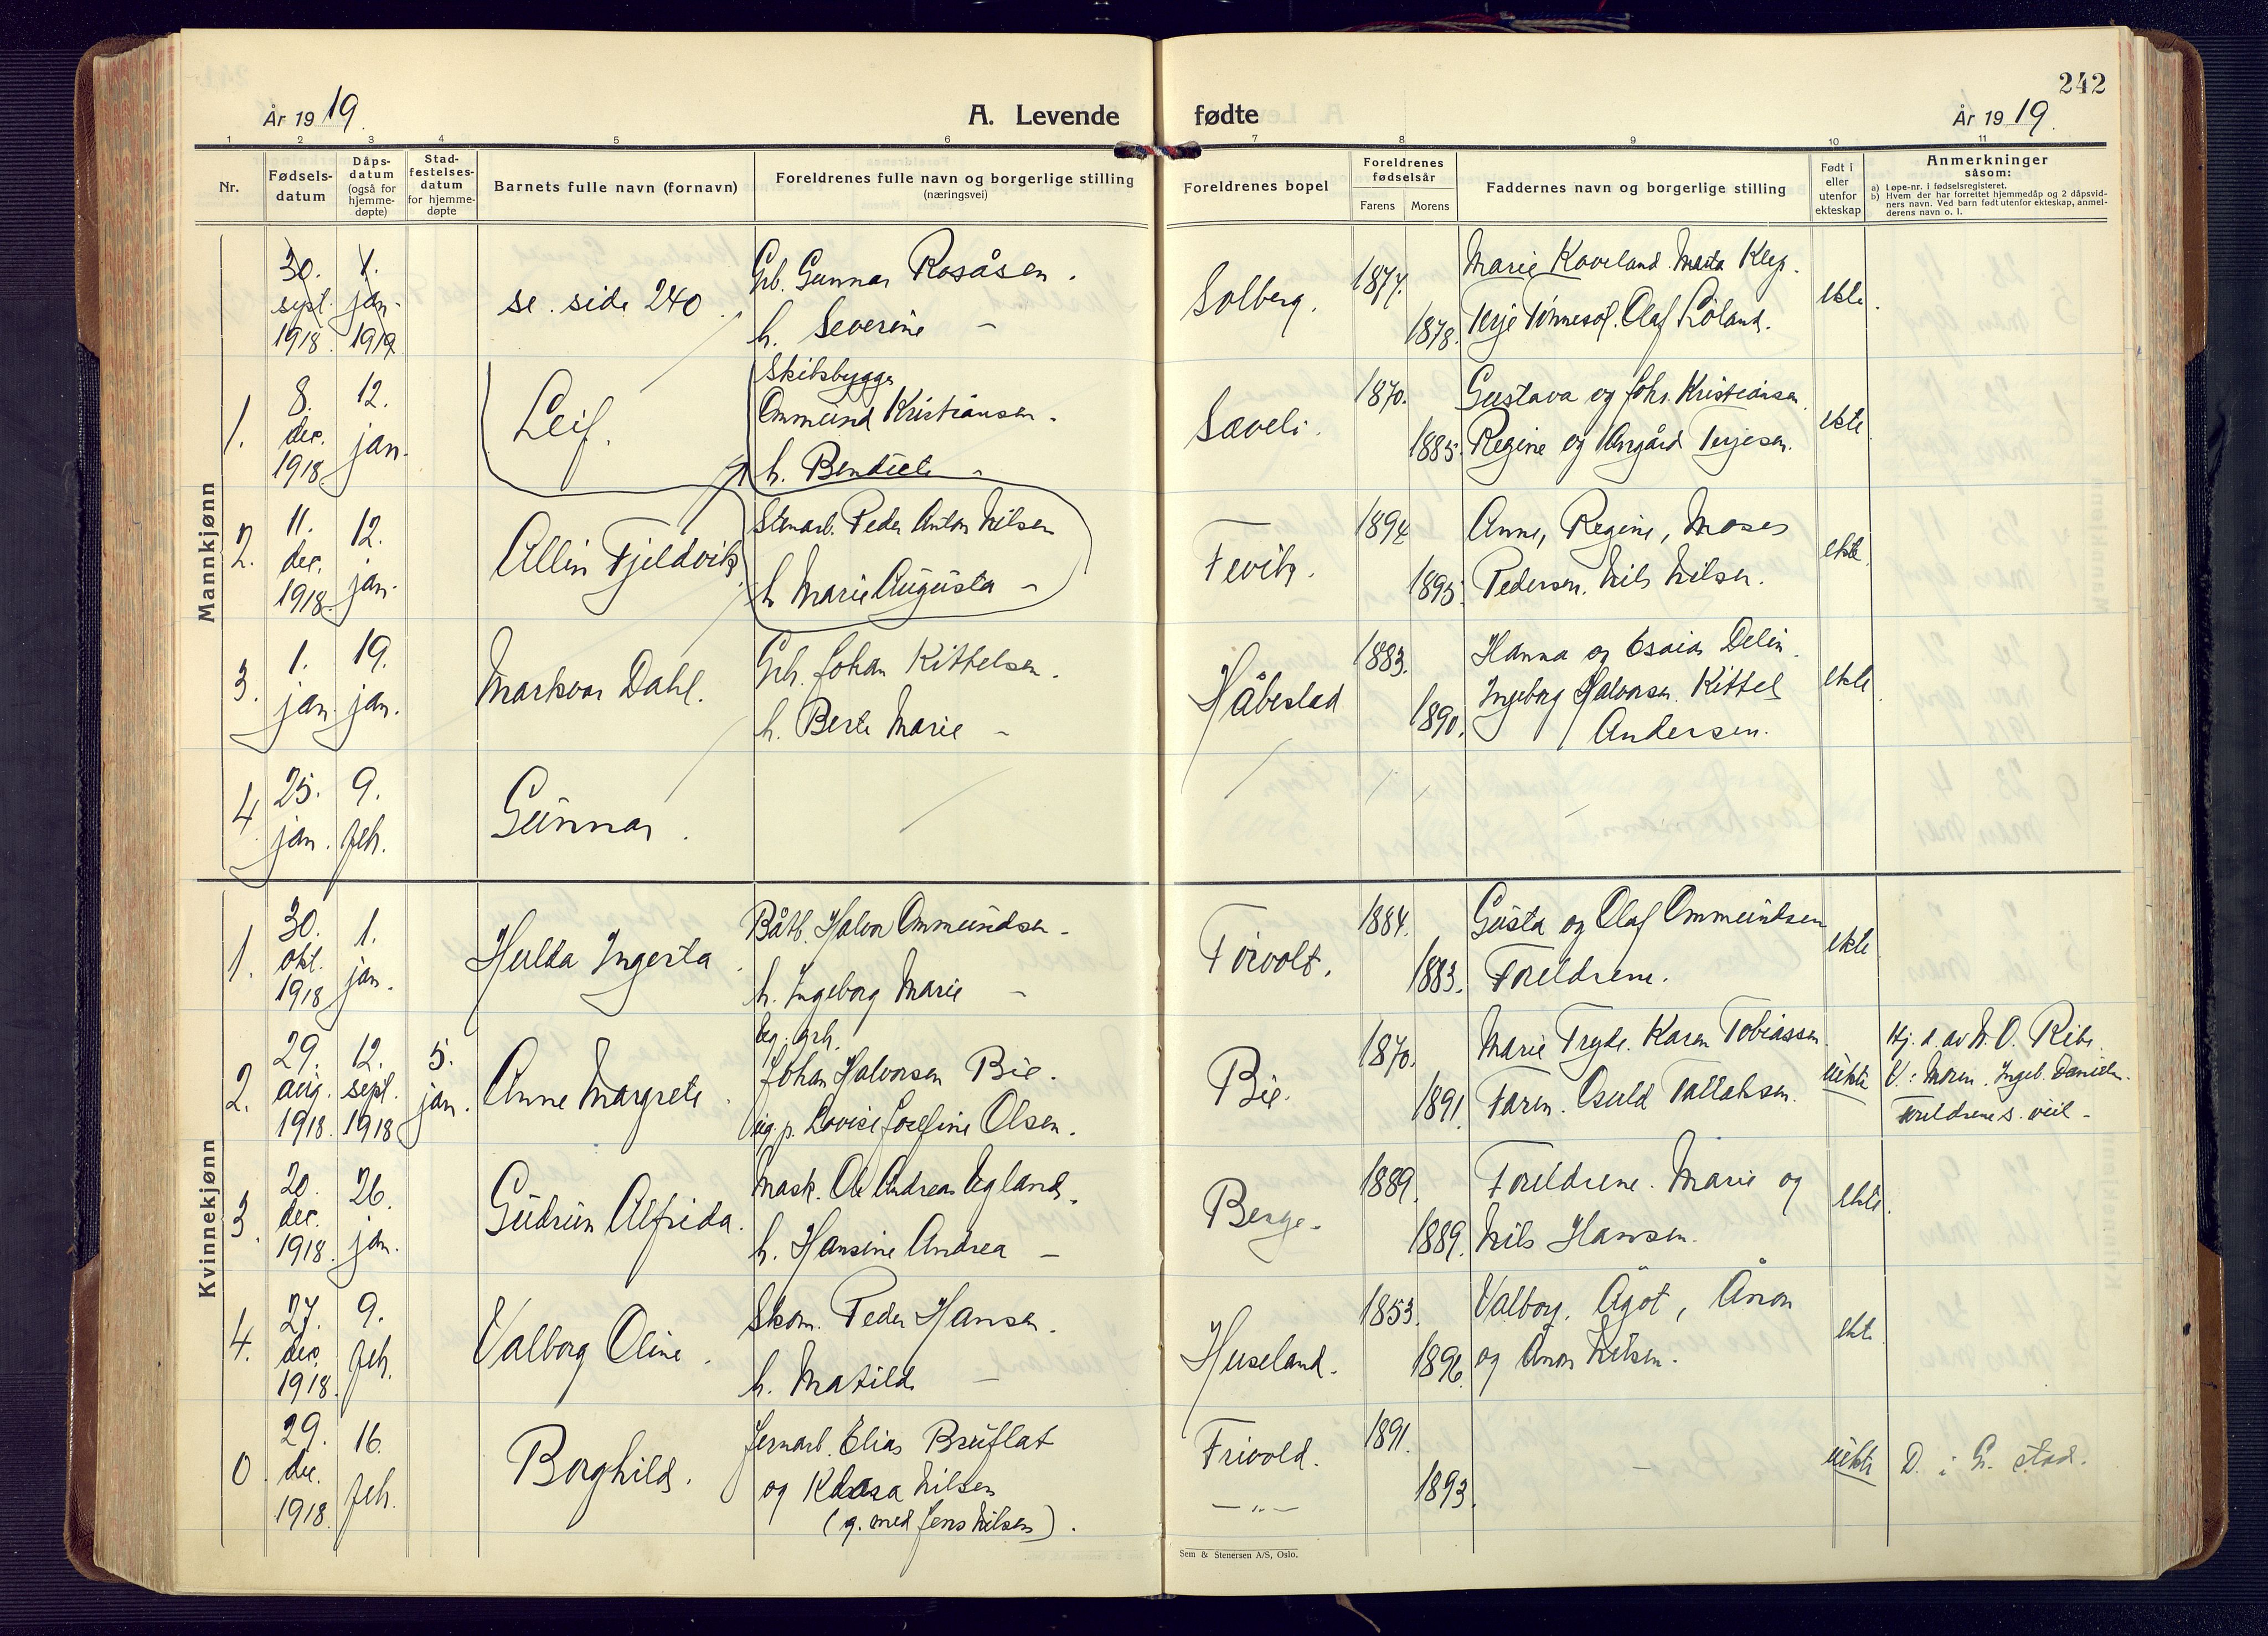 242
År 1919
A. Levende fødte
År 1919.
1 2 3 4 5 6 7 8 9 10 11
Nr.
Fødsels-
datum
Dåps-
datum
(også for
hjemme-
døpte)
Stad-
festelses-
datum
for hjemme-
døpte
Barnets fulle navn (fornavn)
Foreldrenes fulle navn og borgerlige stilling
(næringsvei)
Foreldrenes bopel
Foreldrenes
fødselsår
Farens Morens
Faddernes navn og borgerlige stilling
Født i
eller
utenfor
ekteskap
Anmerkninger
såsom:
a) Løpe-nr. i fødselsregisteret.
b) Hvem der har forrettet hjemmedåp og 2 dåpsvid-
ners navn. Ved barn født utenfor ekteskap, anmel-
derens navn o. l.
Mannkjønn
30. sept. 1918
1. jan. 1919
se. side 240
Grb. Gunnar Rosåsen.
h. Severine -
Solberg.
1874.
1878.
Marie Kaveland. Marta Klep.
Terje Tønnesøl. Olaf Løland.
ekte.
1.
8. dec. 1918
12. jan.
Leif.
Skibsbygger
Ommund Kristiansen.
h. Bendicte -
Saveli.
1870.
1885.
Gustava og Johs. Kristiansen.
Regine og Asgård Terjesen.
ekte.
2.
11. dec. 1918
12. jan.
Allin Fjeldvik.
Stenarb. Peder Anton Nilsen
h. Marie Augusta -
Fevik.
1894
1895.
Anne, Regine, Moses
Pedersen. Nils Nilsen.
ekte.
3.
1. jan.
19. jan.
Markvar Dahl.
Grb. Johan Kittelsen.
h. Berte Marie -
Håbestad
1883.
1890.
Hanna og Esaias Delin.
Ingeborg Halvorsen. Kittel
Andersen.
ekte.
4
25. jan.
9. feb.
Gunnar.
Kvinnekjønn
1.
30. okt. 1918
1. jan.
Hulda Ingerta.
Båtb. Halvor Ommundsen.
h. Ingeborg Marie -
Frivolt.
1884.
1883.
Gusta og Olaf Ommundsen
Foreldrene.
ekte
2.
29. aug. 1918.
12. sept. 1918
5. jan.
Anne Margrete.
Ug. grb.
Johan Halvorsen Bie.
Ug. p. Lovise Josefine Olsen.
Bie.
1870.
1891.
Marie Tryde. Karen Tobiassen.
Faren. Osuld Tallaksen.
uekte
Hj. d. av N. O. Ribe.
V: Moren. Ingeb. Danielsen.
Foreldrene s. veil -
3.
20. dec. 1918.
26. jan.
Gudrun Alfrida.
Mask. Ole Andreas Egland.
h. Hansine Andrea -
Berge.
1889.
1889.
Foreldrene. Marie og
Nils Hansen.
ekte.
4.
27. dec. 1918.
9. feb.
Valborg Oline.
Skom. Peder Hansen.
h. Matilde -
Huseland.
1853.
1896.
Valborg, Ågot, Ånon
og Ånon Nilsen.
ekte.
0
29. dec. 1918.
16. feb.
Borghild.
Jernarb. Elias Bruflat
og Klara Nilsen
(g. med Jens Nilsen).
Frivold.
— „ —
1891.
1893.
—
uekte
D. i G. stad.
Sem & Stenersen A/S, Oslo.